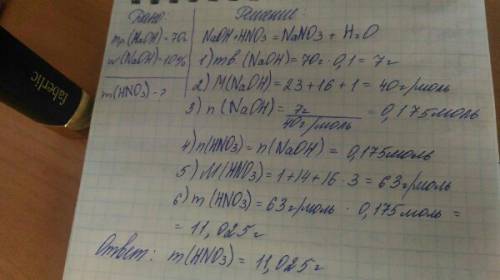 Дано:
mр.(NaOH)=70г
w(NaOH)=10%
m(HNO3)-?
Решение:
NaOH+HNO3=NaNO3+H2O
1) mв.(NaOH)=70г·0,1=7г
2) M(NaOH)=23+16+1=40г/моль
3) n(NaOH)=7г/40г/моль=0,175моль
4) n(HNO3)=n(NaOH)=0,175моль
5) M(HNO3)=1+14+16·3=63г/моль
6) m(HNO3)=63г/моль·0,175моль=
=11,025г
Ответ: m(HNO3)=11,025г
faberlic